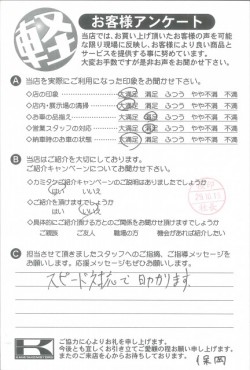 軽
お客様アンケート
当店では、お買い上げ頂いたお客様の声を可能
な限り現場に反映し、お客様により良い商品と
サービスを提供する事に努めています。
大変お手数ですが是非お声をお聞かせ下さい。
A 当店を実際にご利用になった印象をお聞かせ下さい。
◇店の印象 大満足 満足 ふつう やや不満 不満
◇店内・展示場の清掃 大満足 満足 ふつう やや不満 不満
◇お車の品揃え 大満足 満足 ふつう やや不満 不満
◇営業スタッフの対応 大満足 満足 ふつう やや不満 不満
◇納車時のお車の状態 大満足 満足 ふつう やや不満 不満
B 当店はご紹介を大切にしております。
ご紹介キャンペーンについてお聞かせ下さい。
◇カミタケご紹介キャンペーンのご説明はありましたでしょうか
はい いいえ
◇ご紹介を頂けますでしょうか
はい いいえ
◇具体的にご紹介頂ける方とのご関係をお聞かせ頂けますでしょうか
ご親戚 ご友人 職場の方 機会があれば紹介したい
C 担当させて頂きましたスタッフへのご指摘、ご指導メッセージを
お願いします。応援メッセージもぜひお願いします。
スピード対応で助かります
K
ご協力に心よりお礼を申し上げます。
今後とも宜しくお引き立てご愛顧の程お願い申し上げます。
またのご来店を心からお待ちしております。
保岡